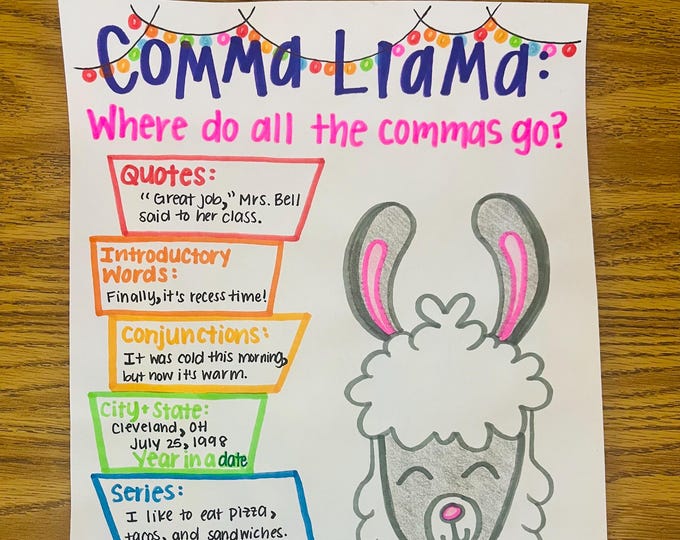 Comma Llama:
Where do all the commas go?
Quotes:
"Great job," Mrs. Bell
said to her class.
Introductory
Words:
Finally, it's recess time!
Conjunctions:
It was cold this morning,
but now it's warm.
City + State:
Cleveland, OH
July 25, 1998
Year in a date
Series:
I like to eat pizza,
tacos, and sandwiches.